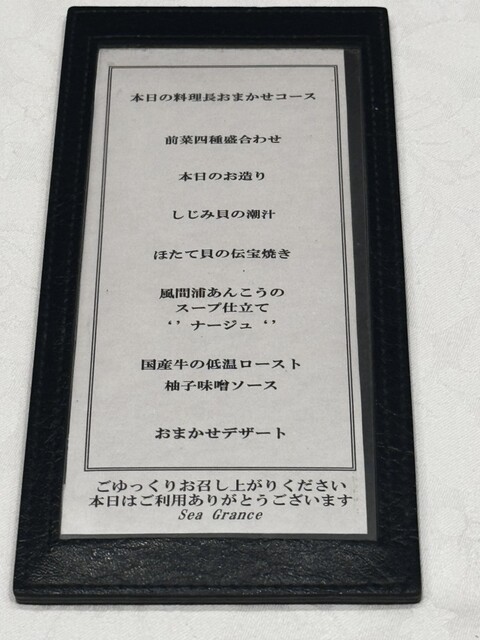 本日の料理長おまかせコース
前菜四種盛合わせ
本日のお造り
しじみ貝の潮汁
ほたて貝の伝宝焼き
風間浦あんこうの
スープ仕立て
‘’ ナージュ ‘’
国産牛の低温ロースト
柚子味噌ソース
おまかせデザート
ごゆっくりお召し上がりください
本日はご利用ありがとうございます
Sea Grance